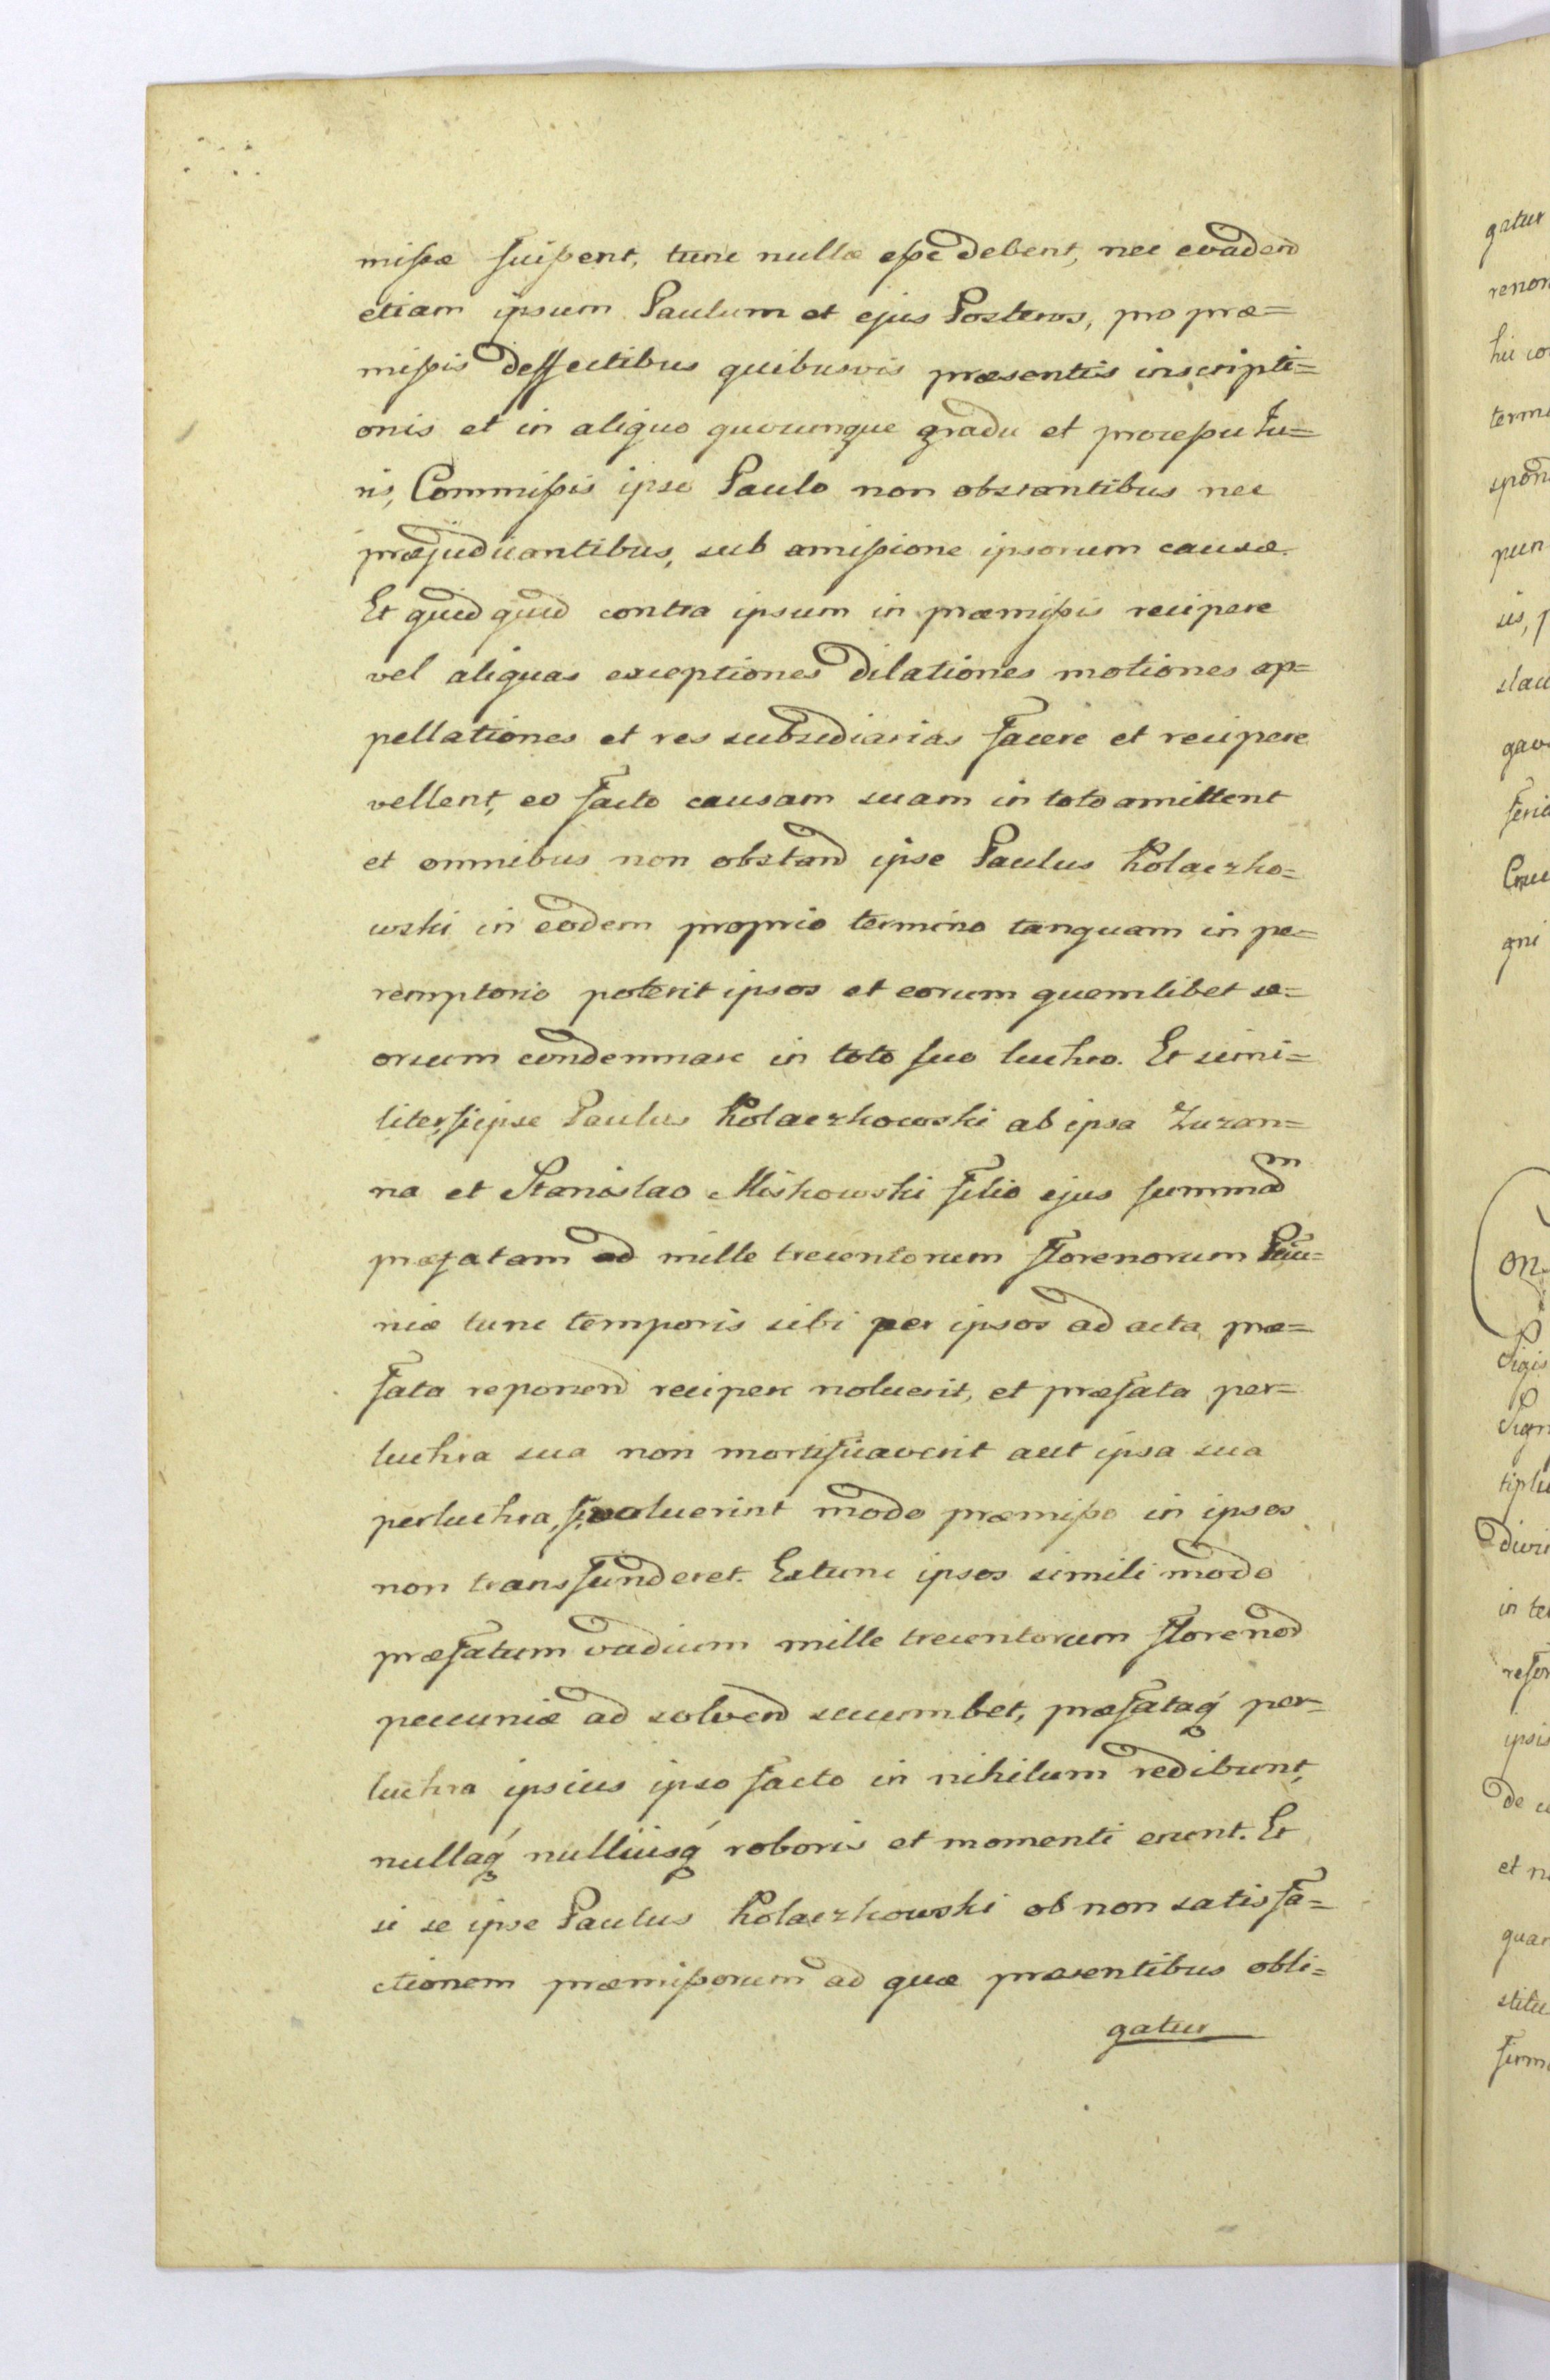 missæ fuissent, tunc nullæ esse debent, nec evadend
etiam ipsum Paulum et ejus Posteros, pro præ=
missis deffectibus quibusvis præsentis inscripti=
onis et in aliquo quocunque gradu et processu Ju=
ris, Commissis ipso Paulo non obstantibus nec
præjudicantibus, sub amissione ipsorum causæ.
Et quid quid contra ipsum in præmissis recipere
vel aliquas exceptiones dilationes motiones ap=
pellationes et res subsidiarias facere et recipere
vellent, eo facto causam suam in toto amittent
et omnibus non obstand ipse Paulus Kolaczko=
wski in eodem proprio termino tanquam in pe=
remptorio poterit ipsos et eorum quemlibet se=
orsum condemnare in toto suo luchro. Et simi=
liter, si ipse Paulus Kolaczkowski ab ipsa Zuzan=
na et Stanislao Miskowski filio ejus summam
præfatam ad mille trecentorum florenorum Pecu=
niæ tunc temporis sibi per ipsos ad acta præ=
fata reponend recipere noluerit, et præfata per=
luchra sua non mortificaverit aut ipsa sua
perluchra, si voluerint modo præmisso in ipsos
non transfunderet. Extunc ipsos simili modo
præfatum vadium mille trecentorum florenod
pecuniæ ad solvend succumbet, præfataq́ per=
luchra ipsius ipso facto in nihilum redibunt,
nullaq́ nulliusq́ roboris et momenti erunt. Et
si se ipse Paulus Kolaczkowski ob non satisfa=
ctionem præmissorum ad quæ præsentibus obli=
gatur
gatur
hic co
termi
spon
pun
sis, p
gavi
feria
gni
Sigis
Sign
tiplic
divi
in te
ipsis
de c
et n
quar
stitu
firm